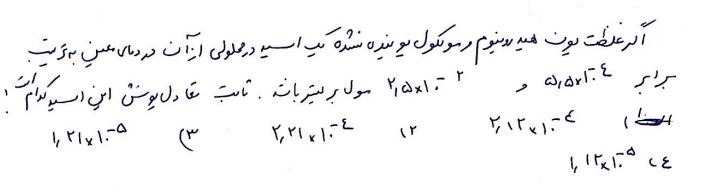 اگر غلظت یون هیدرونیوم و مولکول یونیده نشده یک اسید در محلولی از آن در دمای معین به ترتیب
برابر ۵٫۵×۱۰⁻⁴ و ۲٫۵×۱۰⁻² مول بر لیتر باشد. ثابت تعادل یونش این اسید کدام است؟
۱) ۲٫۱۲×۱۰⁻⁴ ۲) ۲٫۲۱×۱۰⁻⁴ ۳) ۱٫۲۱×۱۰⁻⁵
۴) ۱٫۱۲×۱۰⁻⁵